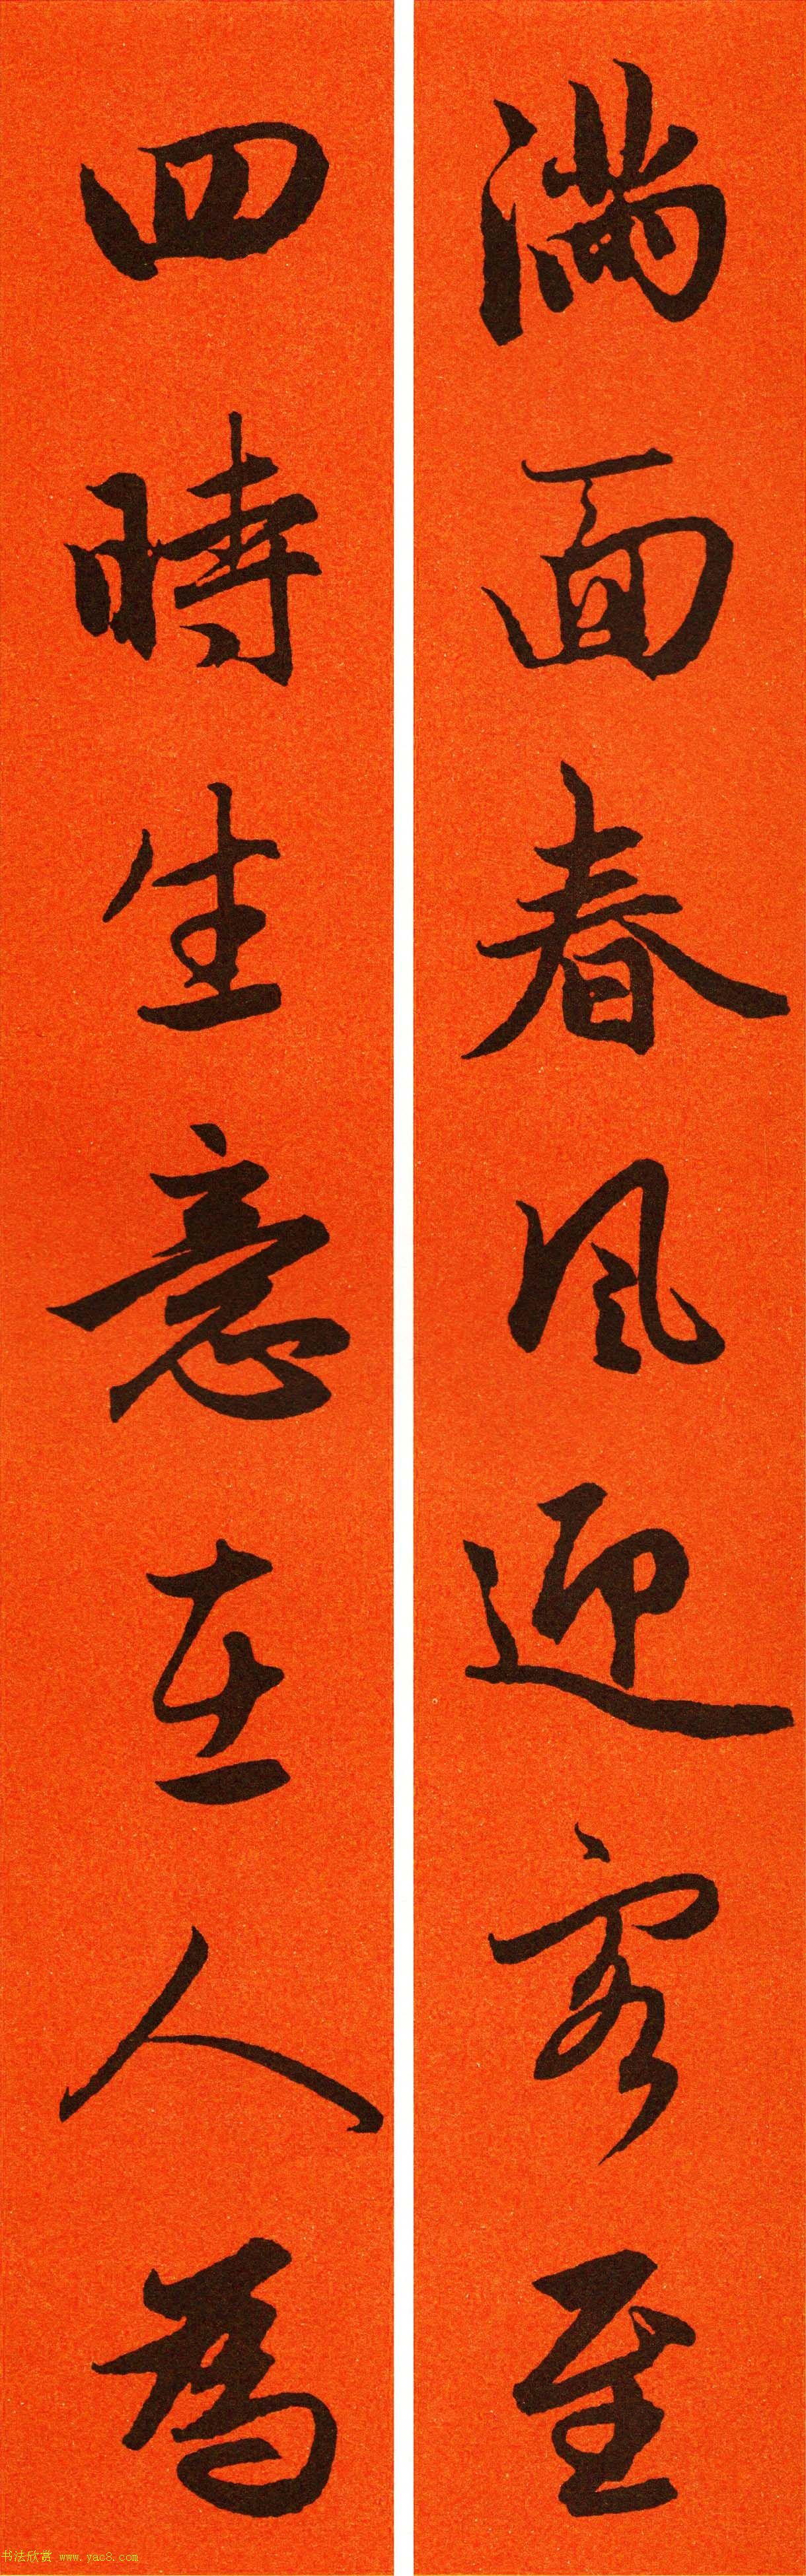 滿面春风迎客至
四時生意在人為
书法欣赏 www.yac8.com